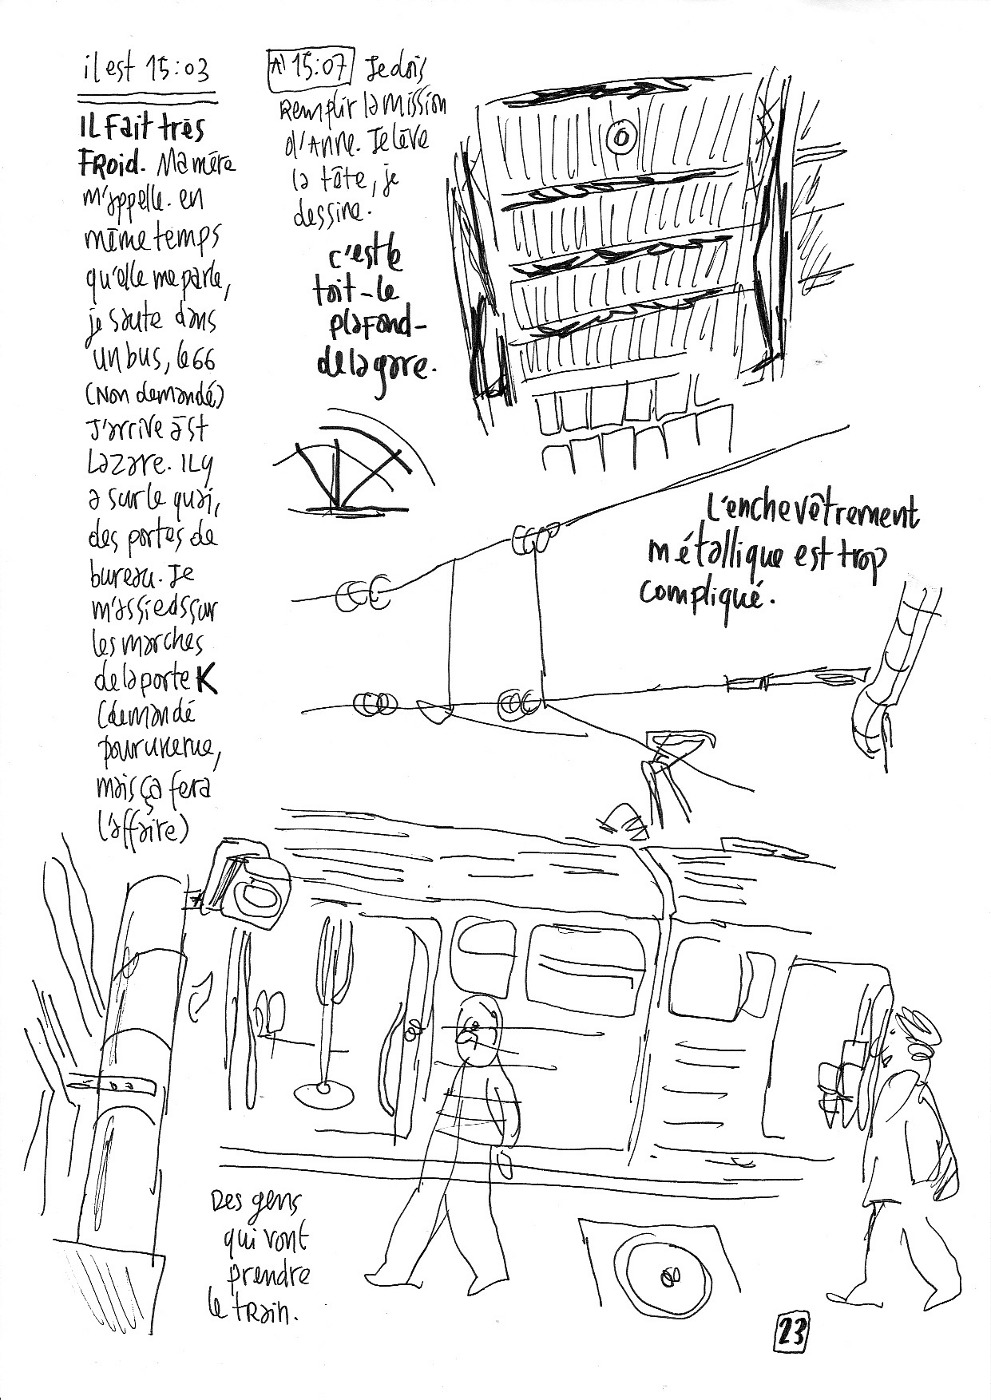 il est 15:03
IL Fait très
FROID. Ma mère
m'appelle. en
même temps
qu'elle me parle,
je saute dans
un bus, le 66
(Non demandé)
J'arrive à St
Lazare. IL y
a sur le quai,
des portes de
bureau. Je
m'assieds sur
les marches
de la porte K
(demandé
pour une rue,
mais ça fera
l'affaire)
A 15:07 Je dois
Remplir la mission
d'Anne. Je lève
la tête, je
dessine.
c'est le
toit - le
plafond -
de la gare.
L'enchevêtrement
métallique est trop
compliqué.
Des gens
qui vont
prendre
le train.
23